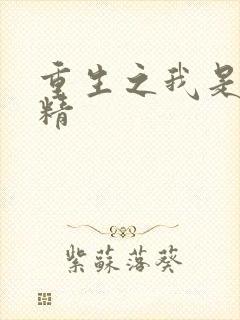 重生之我是
精
紫蘇落葵